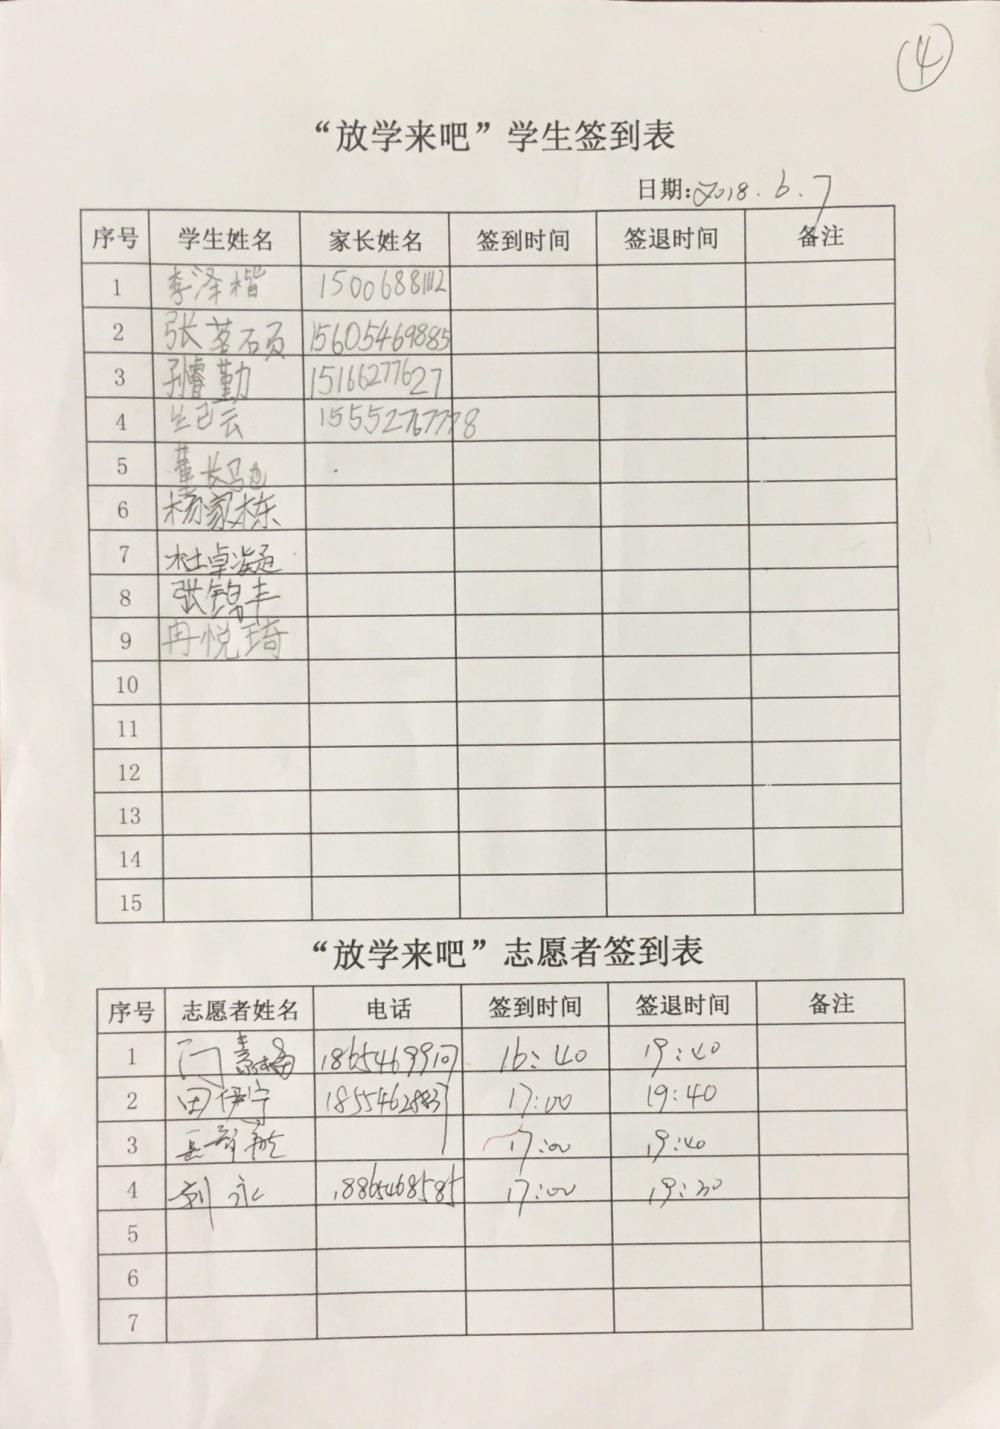 ④
“放学来吧”学生签到表
日期:2018.6.7
序号 学生姓名 家长姓名 签到时间 签退时间 备注
1 李泽楷 15006881112
2 张茗硕 15605469885
3 孙睿勤 15166277627
4 15552767778
5 董长驰
6 杨家栋
7 杜卓凝
8 张锦丰
9 冉悦琦
10
11
12
13
14
15
“放学来吧”志愿者签到表
序号 志愿者姓名 电话 签到时间 签退时间 备注
1 门素梅 16:40 19:40
2 田伊宁 17:00 19:40
3 17:00 19:40
4 刘永 18865468585 17:00 19:30
5
6
7